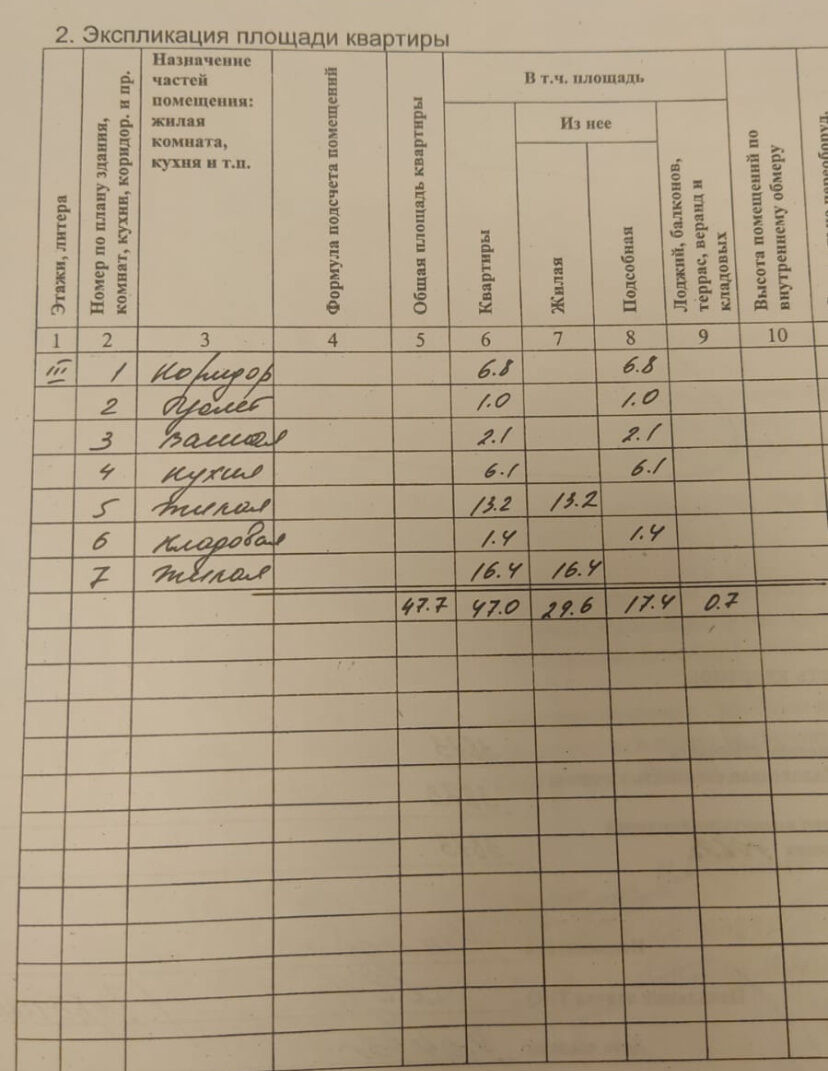 2. Экспликация площади квартиры
Этажи, литера
Номер по плану здания, комнат, кухни, коридор. и пр.
Назначение частей помещения: жилая комната, кухня и т.п.
Формула подсчета помещений
Общая площадь квартиры
В т.ч. площадь
Квартиры
Из нее
Жилая
Подсобная
Лоджий, балконов, террас, веранд и кладовых
Высота помещений по внутреннему обмеру
1 2 3 4 5 6 7 8 9 10
III 1 Коридор 6.8 6.8
2 Туалет 1.0 1.0
3 Ванная 2.1 2.1
4 Кухня 6.1 6.1
5 Жилая 13.2 13.2
6 Кладовая 1.4 1.4
7 Жилая 16.4 16.4
47.7 47.0 29.6 17.4 0.7